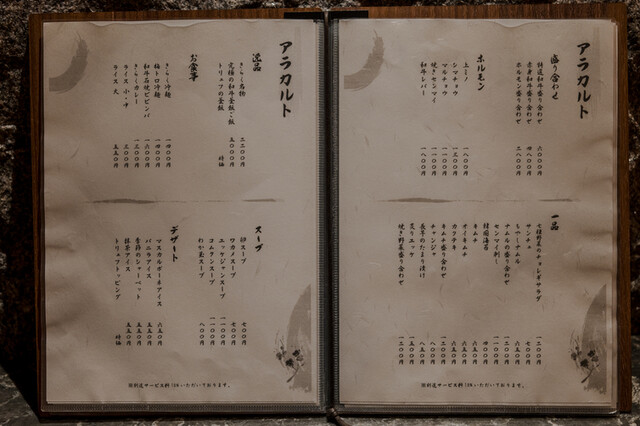 アラカルト
盛り合わせ
特選和牛盛り合わせ 六〇〇〇円
赤身和牛盛り合わせ 四八〇〇円
ホルモン盛り合わせ 二八〇〇円
ホルモン
上ミノ 一八〇〇円
シマチョウ 一三〇〇円
マルチョウ 一二〇〇円
焼きセンマイ 一一〇〇円
和牛レバー 一八〇〇円
一品
七種野菜のチョレギサラダ 一二〇〇円
サンチュ 七〇〇円
もやしナムル 六五〇円
ナムルの盛り合わせ 一二〇〇円
センマイ刺し 一一〇〇円
韓国海苔 四〇〇円
キムチ 六五〇円
オイキムチ 六五〇円
カクテキ 六五〇円
キムチ盛り合わせ 一二〇〇円
チャンジャ 八〇〇円
長芋のたまり漬け 八五〇円
炙りエッケ
焼き野菜盛り合わせ 一三〇〇円
※別途サービス料10%いただいております。
アラカルト
逸品
きらく名物
究極の和牛釜飯 二二〇〇円
トリュフの釜飯 五〇〇〇円
時価
お食事
きらく冷麺 一四〇〇円
梅トロ冷麺 一四〇〇円
和牛石焼ビビンバ 一六〇〇円
きらくカレー 一三〇〇円
ライス 小・中 三〇〇円
ライス 大 五五〇円
スープ
卵スープ 七〇〇円
ワカメスープ 七〇〇円
ユッケジャンスープ 一一〇〇円
コムタンスープ 一一〇〇円
わか玉スープ 八〇〇円
デザート
マスカルポーネアイス 六五〇円
バニラアイス 五五〇円
季節のシャーベット 五五〇円
抹茶アイス 五五〇円
トリュフトッピング 時価
※別途サービス料10%いただいております。